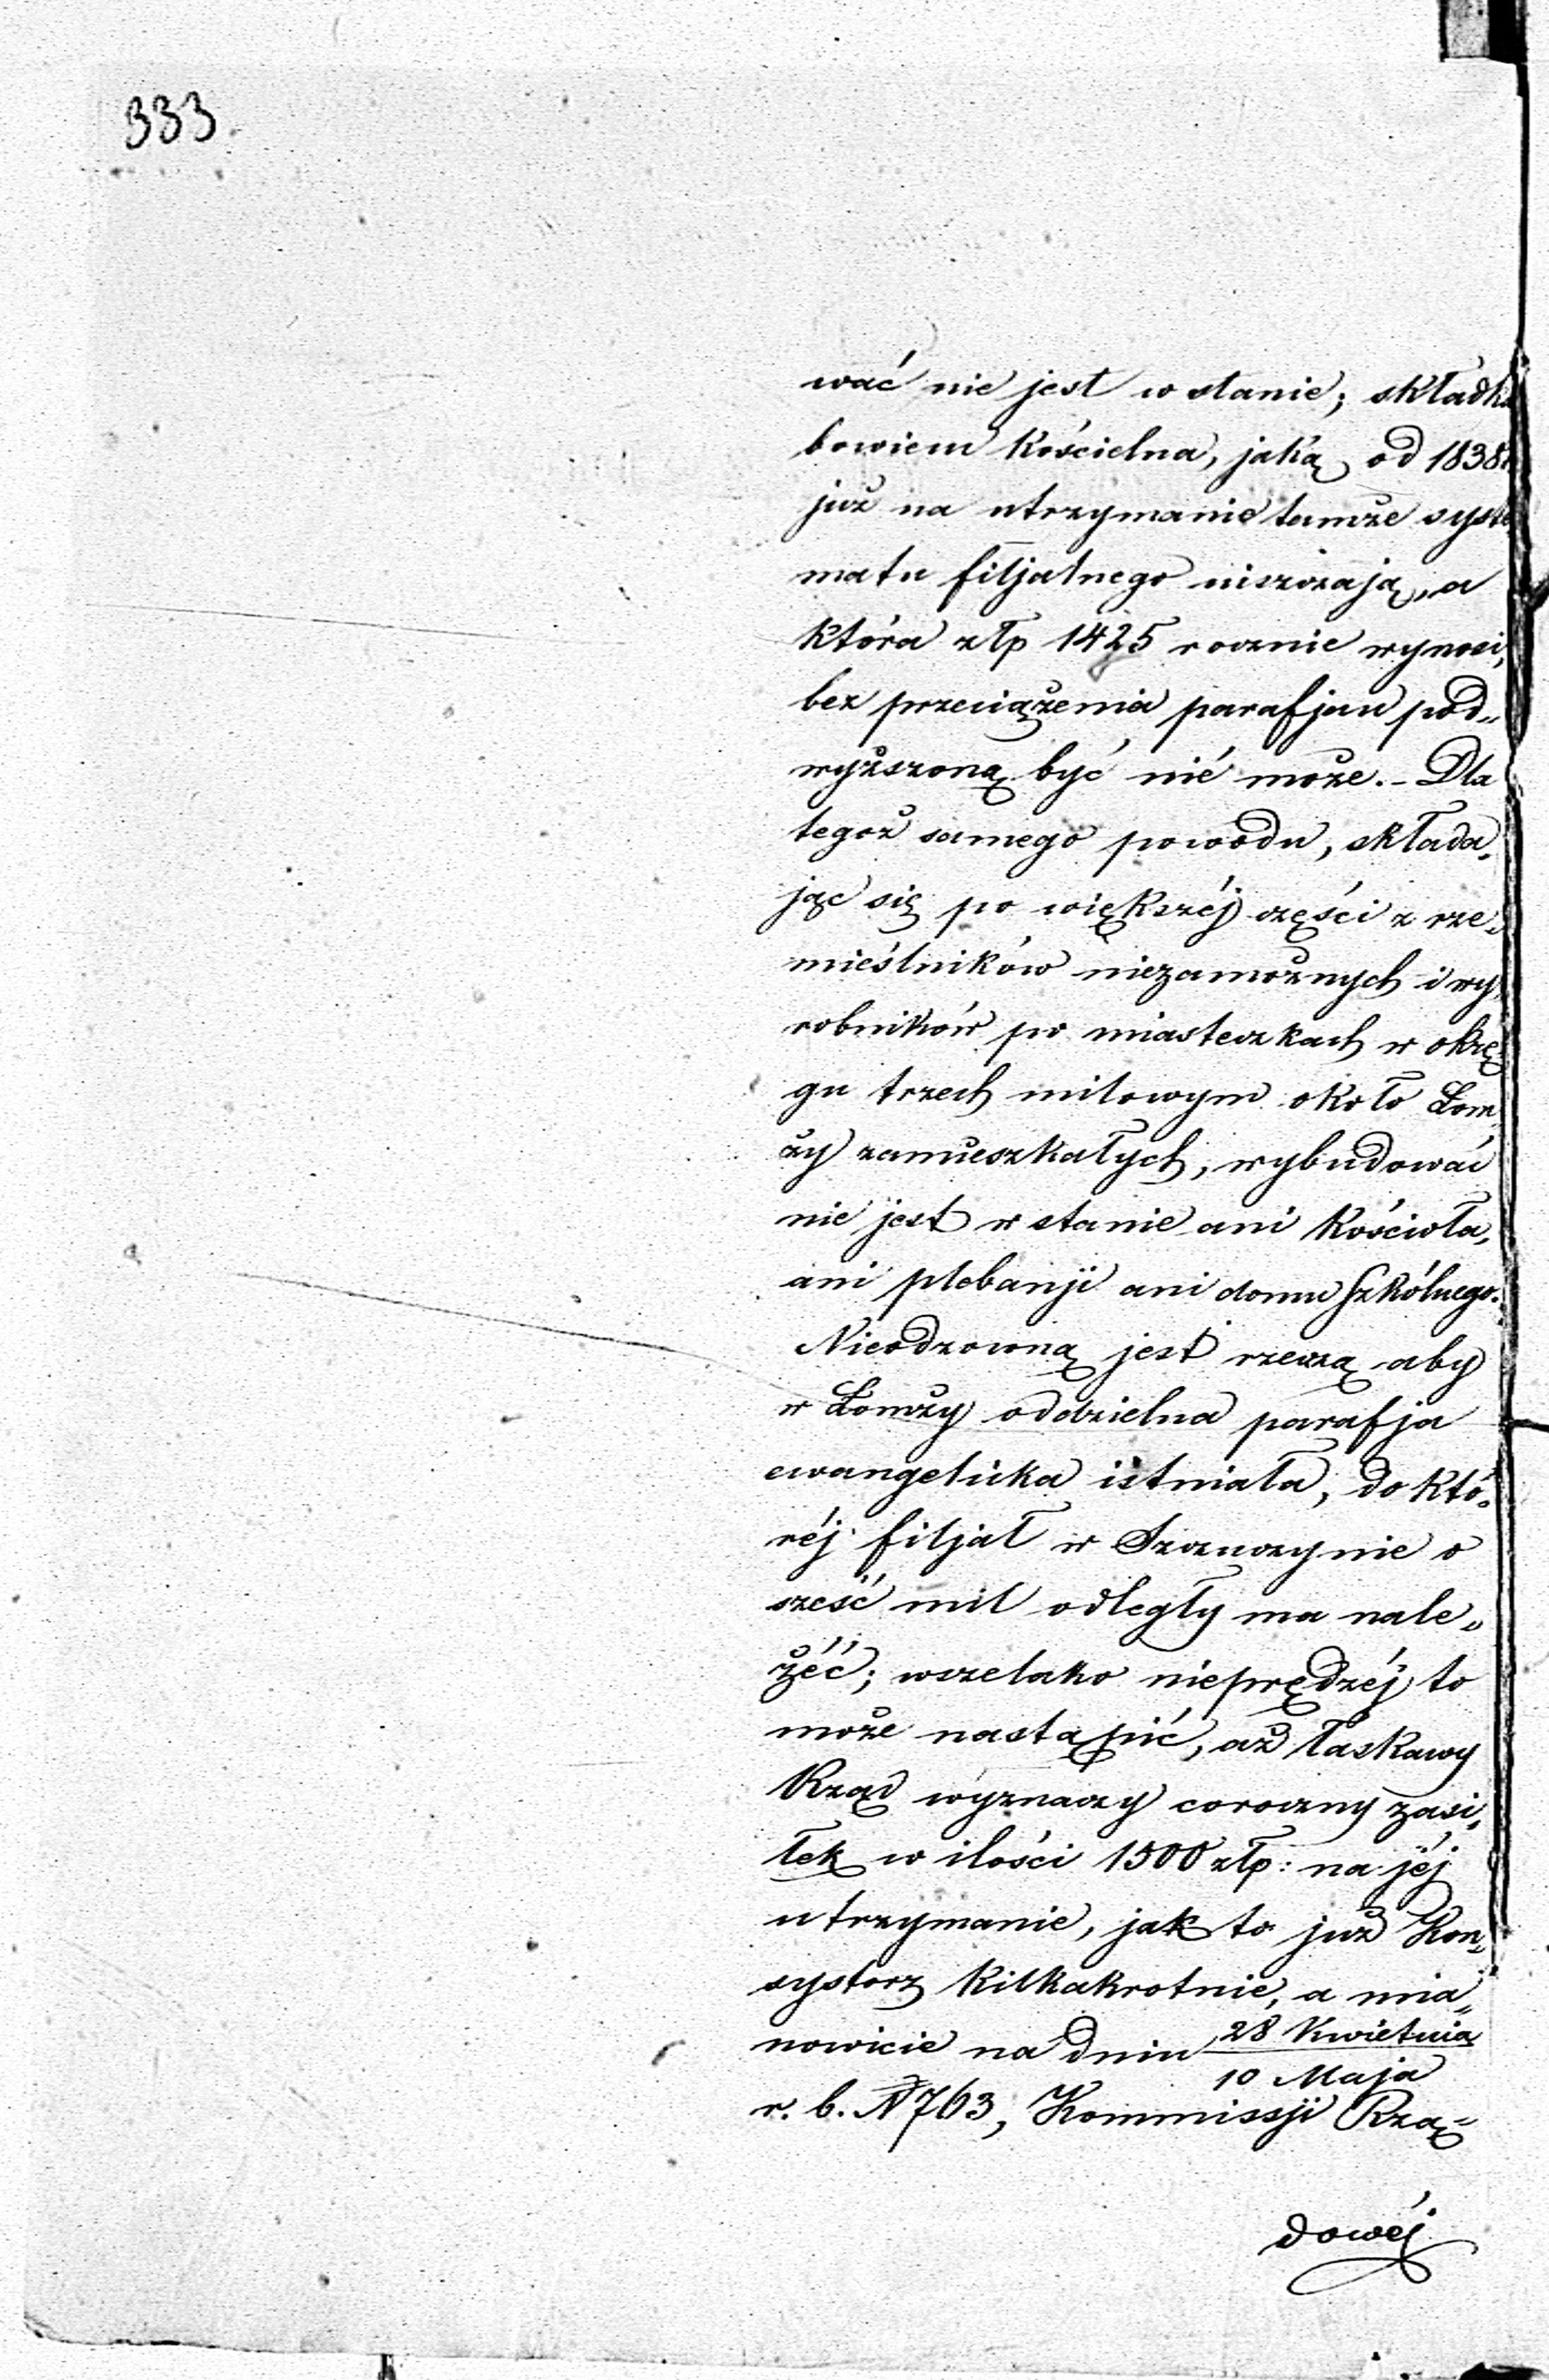 333.
wać nie jest w stanie; składka
bowiem kościelna, jaką od 1838r
już na utrzymanie tamże syste
matu filjalnego uiszczają, a
która złp 1425 rocznie wynosi,
bez przeciążenia parafjan pod„
wyższoną być nié może. – Dla
tegoż samego powodu, składa„
jąc się po większéj części z rze„
mieślników niezamożnych i wy„
robników po miasteczkach w okrę„
gu trzech milowym około Łom
ży zamieszkałych, wybudować
nie jest w stanie ani kościoła,
ani plebanji ani domu szkólnego.
Nieodzowną jest rzeczą aby
w Łomży oddzielna parafja
ewangelicka istniała, do któ„
réj filjał w Szczuczynie o
sześć mil odległy ma nale„
żéć; wszelako nieprędzéj to
może nastąpić, aż łaskawy
Rząd wyznaczy coroczny zasi„
łek w ilości 1500 złp: na jéj
utrzymanie, jak to już Kon„
systorz kilkakrotnie, a mia„
nowicie na dniu 28 Kwietnia
10 Maja
r. b. N 763, Kommissji Rzą„
dowéj